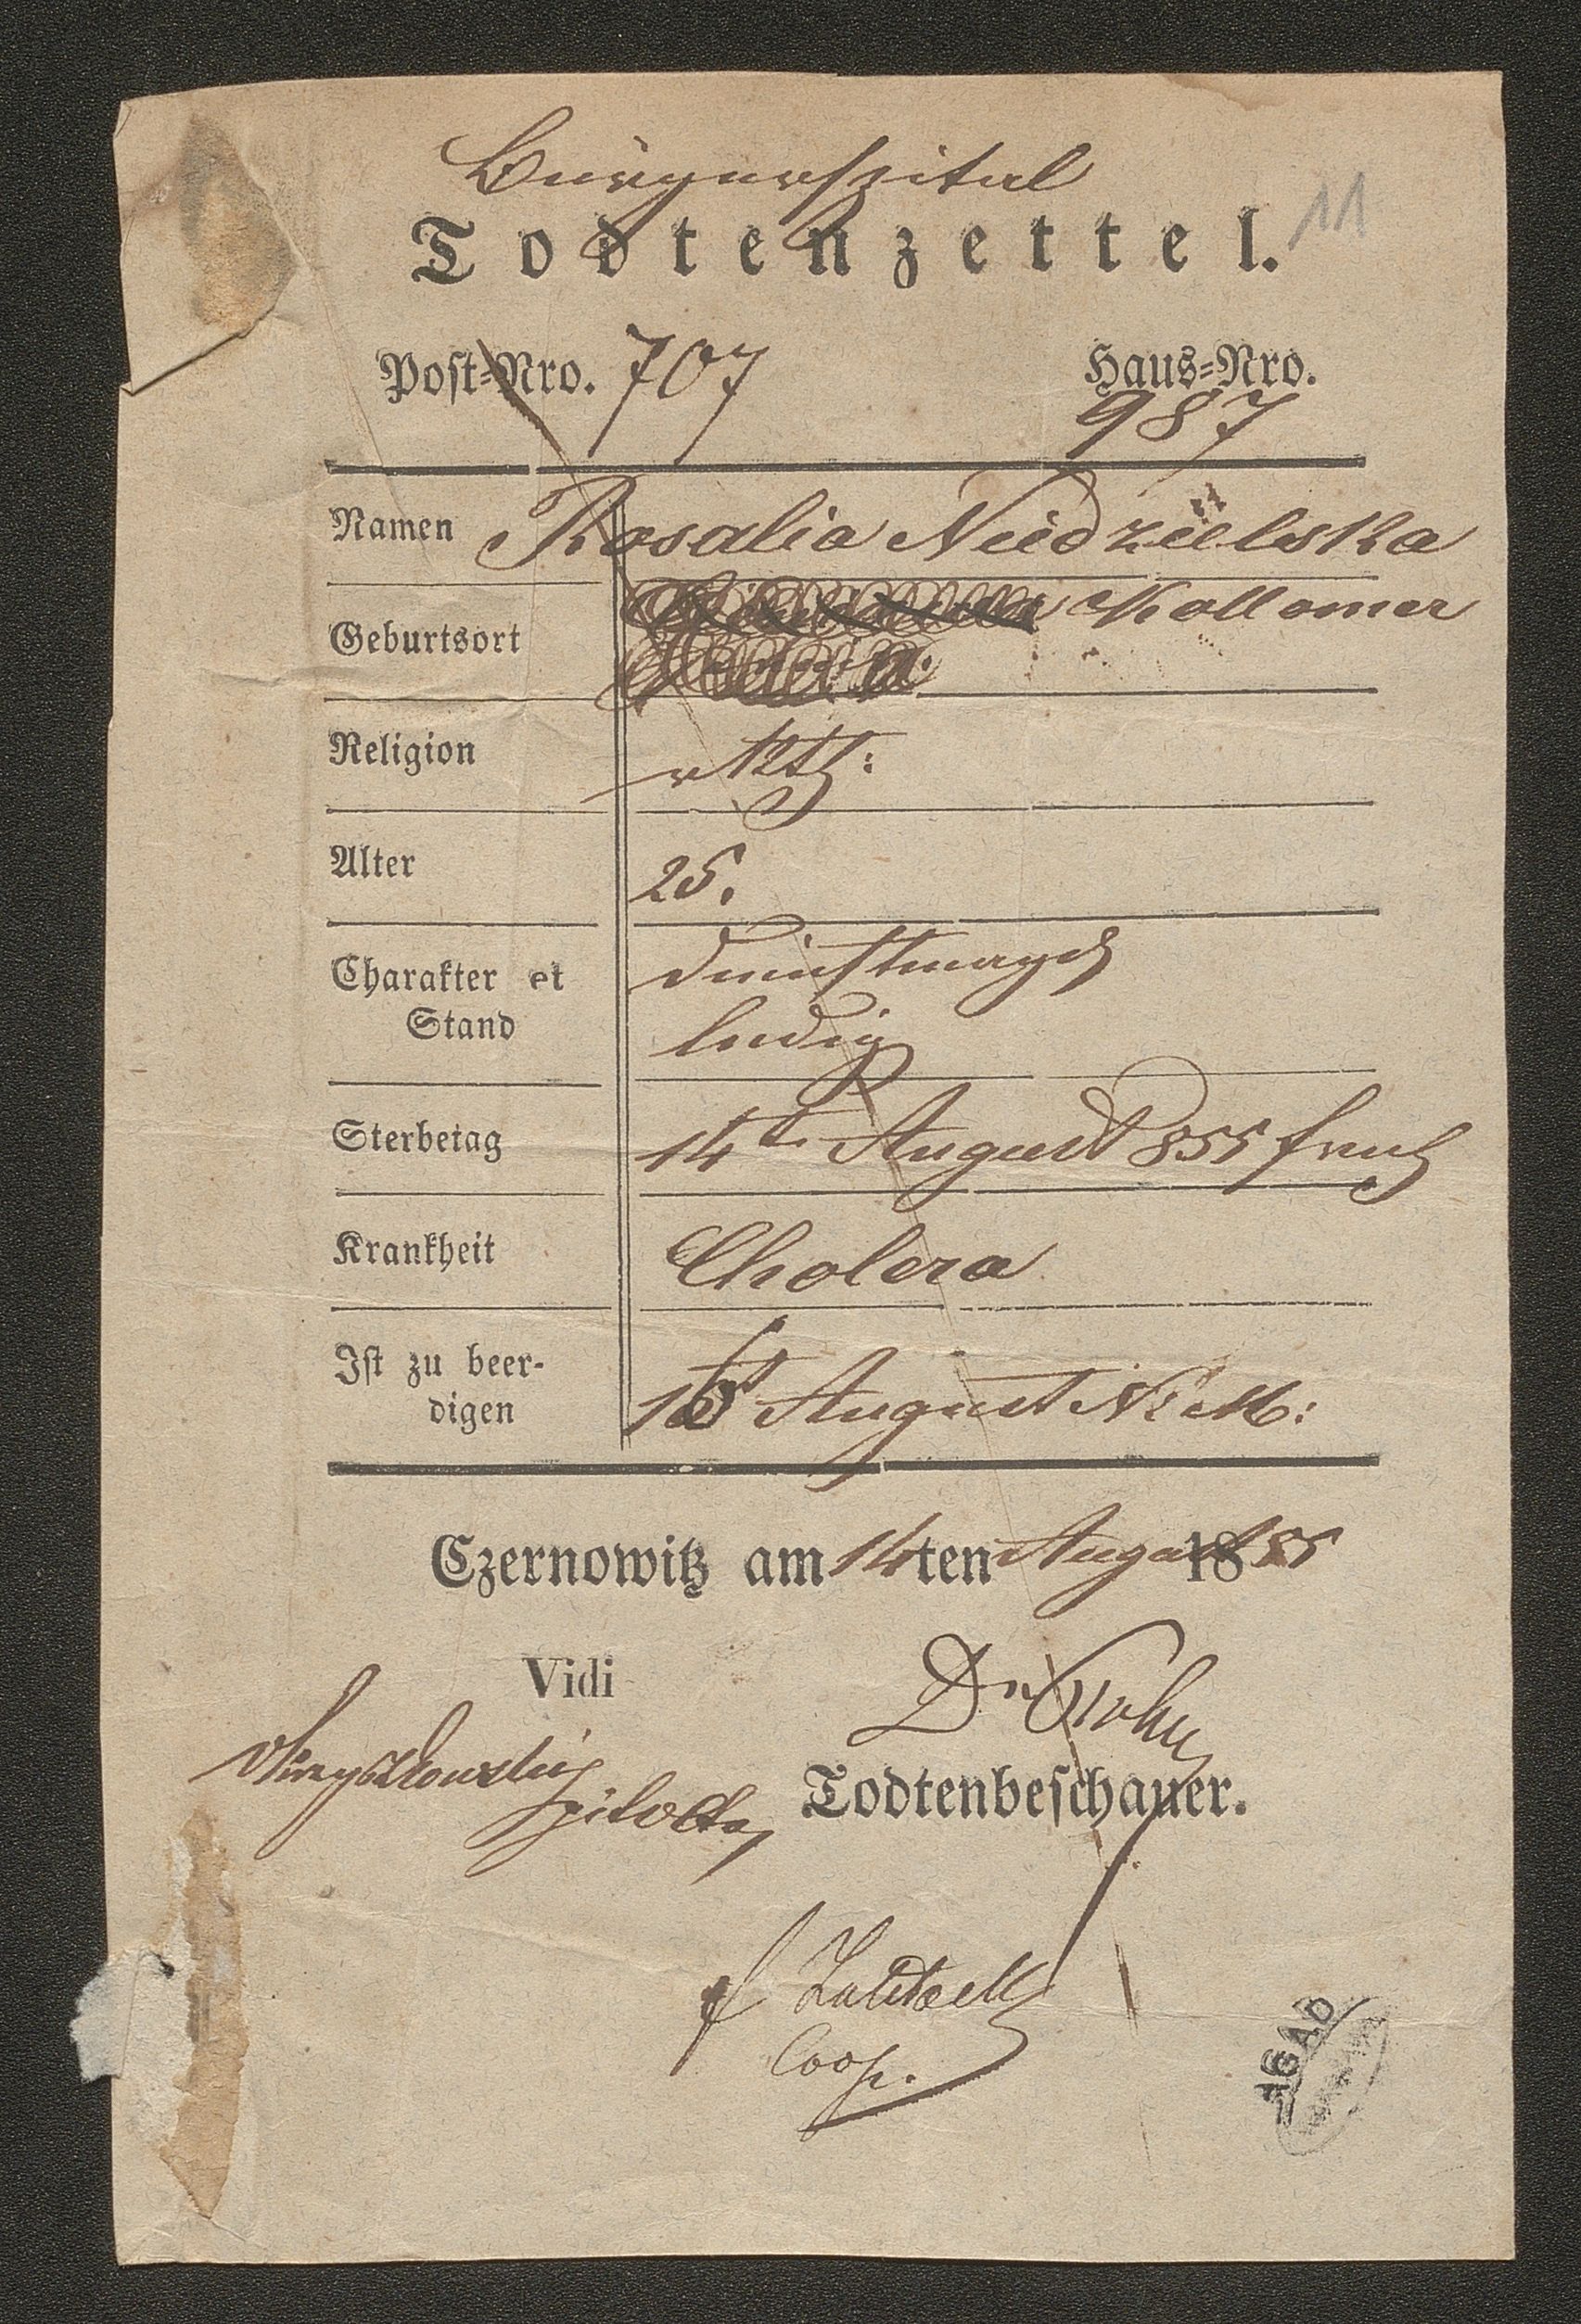 Bürgerspital
Todtenzettel.
11
Post-Nro. 707
Haus-Nro.
987
Namen Rosalia Niedzielska
Geburtsort Kollomer
Religion r kth:
Alter 25.
Charakter et Dienstmagd
Stand ledig
Sterbetag 14t August 855 frueh
Krankheit Cholera
Ist zu beer-
digen 16t August N. M:
Czernowitz am 14ten August 1855
Vidi
Dr
Todtenbeschauer.
Coop.
AGAD